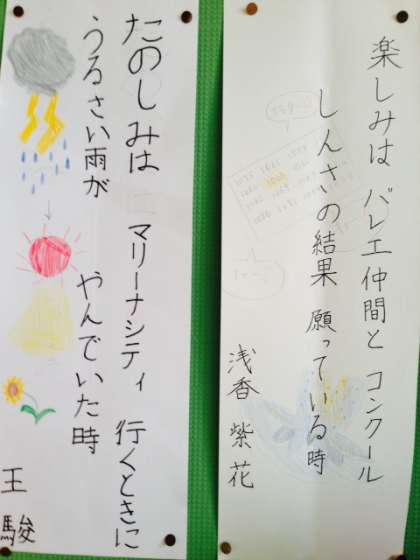 楽しみは バレエ仲間と コンクール
しんさいの結果 願っている時
浅香 紫花
たのしみは マリーナシティ 行くときに
うるさい雨が やんでいた時
王 駿